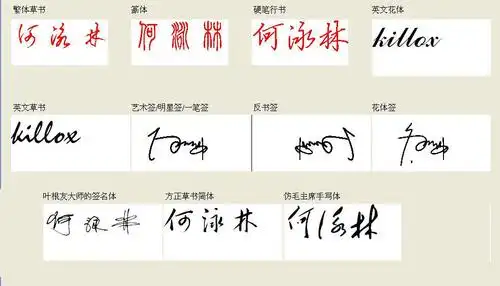 繁体草书 篆体 硬笔行书 英文花体
何泳林 何泳林 何泳林 killox
英文草书 艺术签/明星签/一笔签 反书签 花体签
killox
叶根友大师的签名体 方正草书简体 仿毛主席手写体
何泳林 何泳林 何泳林